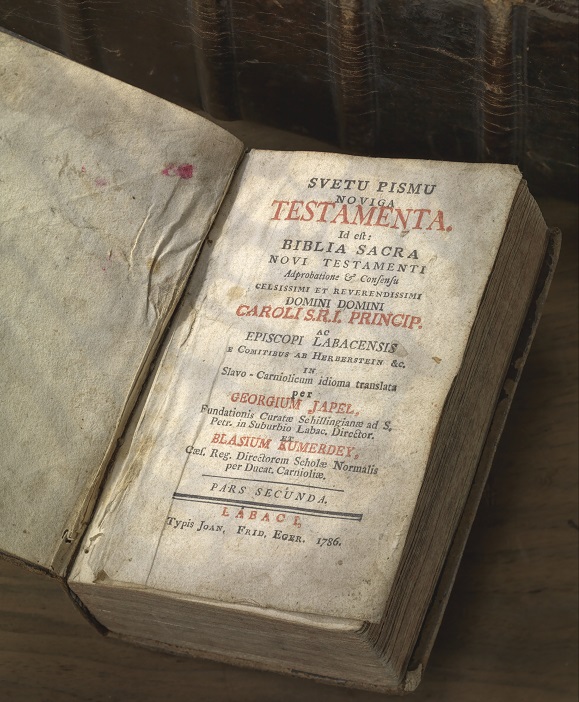 SVETU PISMU
NOVIGA
TESTAMENTA.
Id est:
BIBLIA SACRA
NOVI TESTAMENTI
Adprobatione & Consensu
CELSISSIMI ET REVERENDISSIMI
DOMINI DOMINI
CAROLI S.R.I. PRINCIP.
AC
EPISCOPI LABACENSIS
E COMITIBUS AB HERBERSTEIN &c.
IN
Slavo-Carniolicum idioma translata
per
GEORGIUM JAPEL,
Fundationis Curatæ Schillingianæ ad S.
Petr. in Suburbio Labac. Director.
ET
BLASIUM KUMERDEY,
Cæs. Reg. Directorem Scholæ Normalis
per Ducat. Carnioliæ.
PARS SECUNDA.
LABACI,
Typis JOAN. FRID. EGER. 1786.